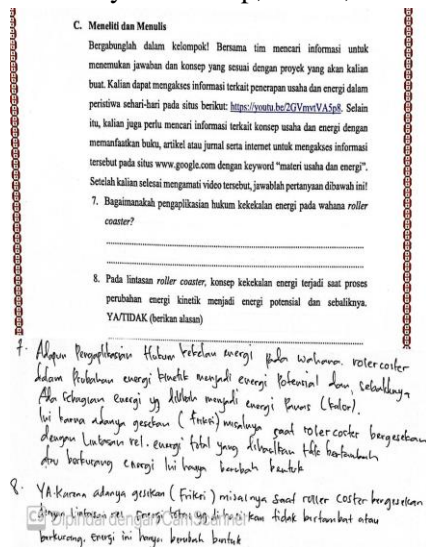 C. Meneliti dan Menulis
Bergabunglah dalam kelompok! Bersama tim mencari informasi untuk
menemukan jawaban dan konsep yang sesuai dengan proyek yang akan kalian
buat. Kalian dapat mengakses informasi terkait penerapan usaha dan energi dalam
peristiwa sehari-hari pada situs berikut: https://youtu.be/2GVmvtVA5p8. Selain
itu, kalian juga perlu mencari informasi terkait konsep usaha dan energi dengan
memanfaatkan buku, artikel atau jurnal serta internet untuk mengakses informasi
tersebut pada situs www.google.com dengan keyword "materi usaha dan energi".
Setelah kalian selesai mengamati video tersebut, jawablah pertanyaan dibawah ini!
7. Bagaimanakah pengaplikasian hukum kekekalan energi pada wahana roller
coaster?
8. Pada lintasan roller coaster, konsep kekekalan energi terjadi saat proses
perubahan energi kinetik menjadi energi potensial dan sebaliknya.
YA/TIDAK (berikan alasan)
7. Adapun Pengaplikasian Hukum kekelan energi pada wahana rolercoster
dalam Perubahan energi kinetik menjadi energi Potensial dan sebaliknya,
Ada sebagian energi yg diubah menjadi energi Panas (kalor).
Ini karna adanya gesekan (friksi) misalnya saat rolercoster bergesekan
dengan Lintasan rel. energi total yang dihasilkan tdk bertambah
atau berkurang energi Ini hanya berubah bentuk
8. YA. Karena adanya gesekan (friksi) misalnya saat roller coster bergesekan
dengan Lintasan rel. energi total yg dihasilkan tidak bertambat atau
berkurang. energi ini hanya berubah bentuk
CS Dipindai dengan CamScanner